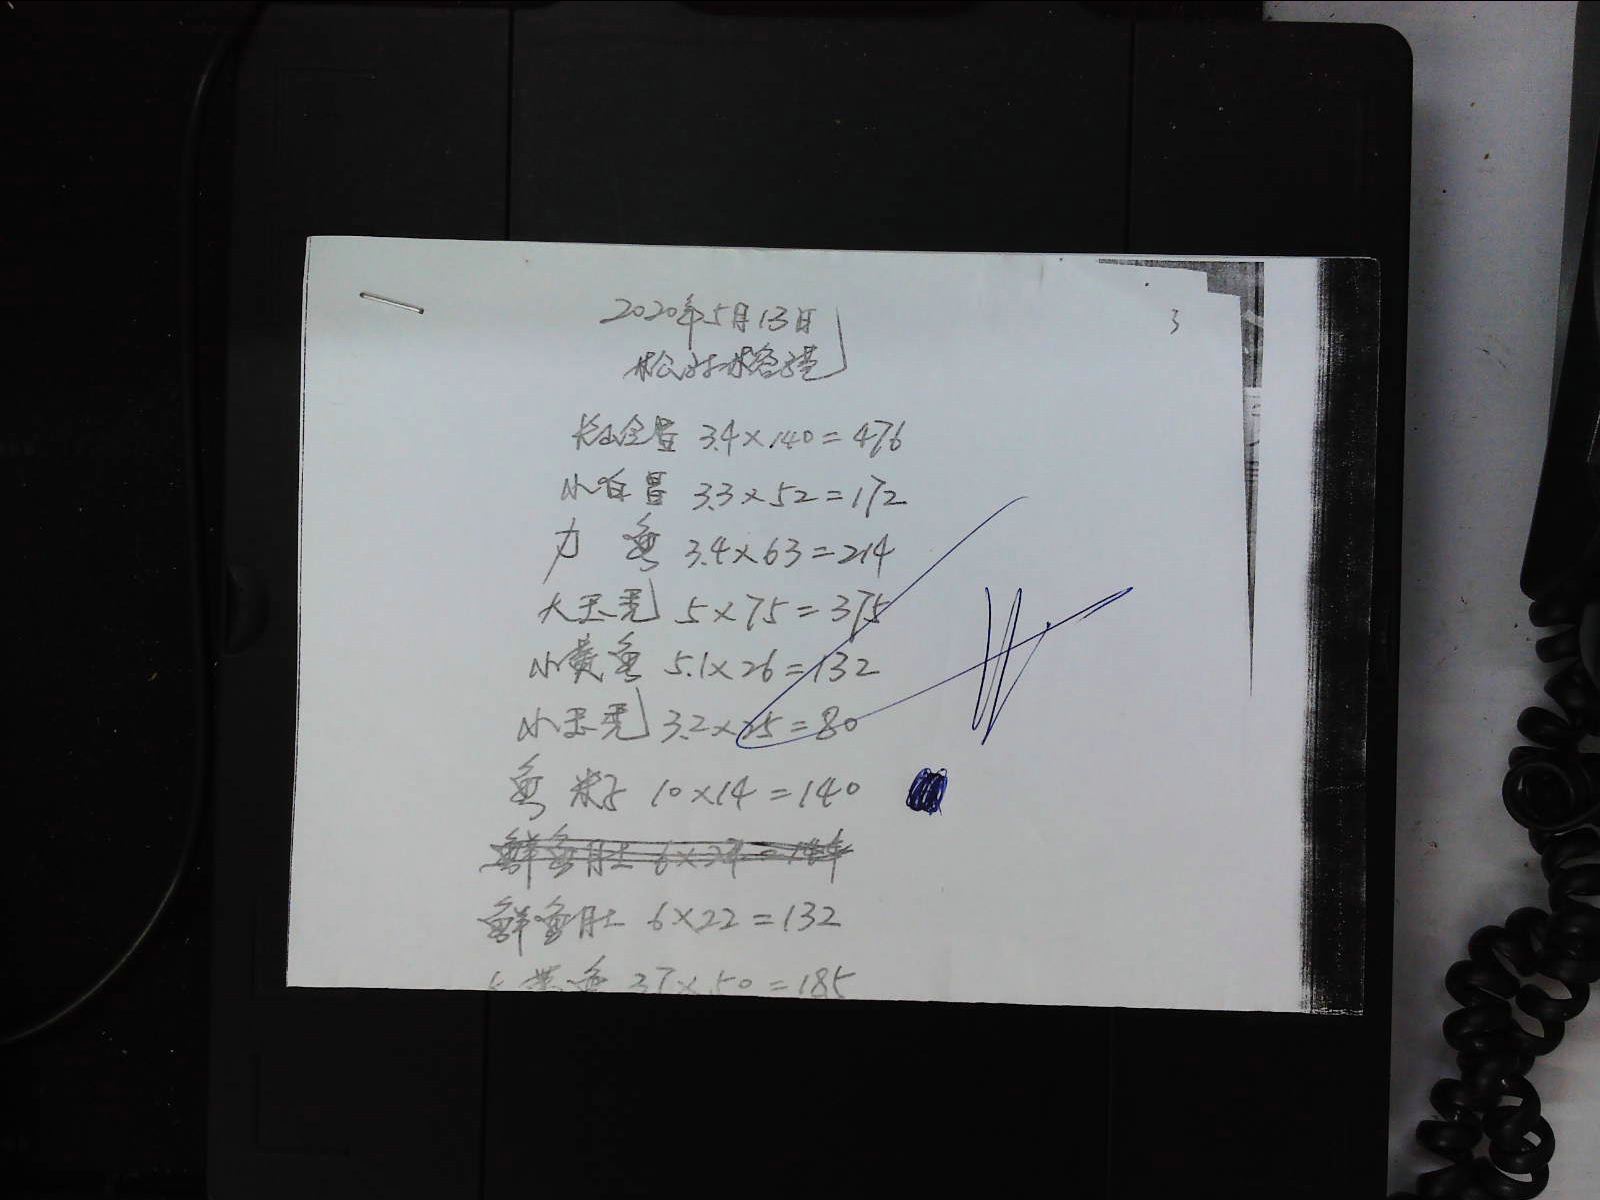 2020年5月13日
3
3.4×140=476
小白昌 3.3×52=172
力 鱼 3.4×63=214
大玉秃 5×75=375
小黄鱼 5.1×26=132
小玉秃 3.2×25=80
鱼 籽 10×14=140
鲜鱼肚
鲜鱼肚 6×22=132
黄鱼 3.7×50=185